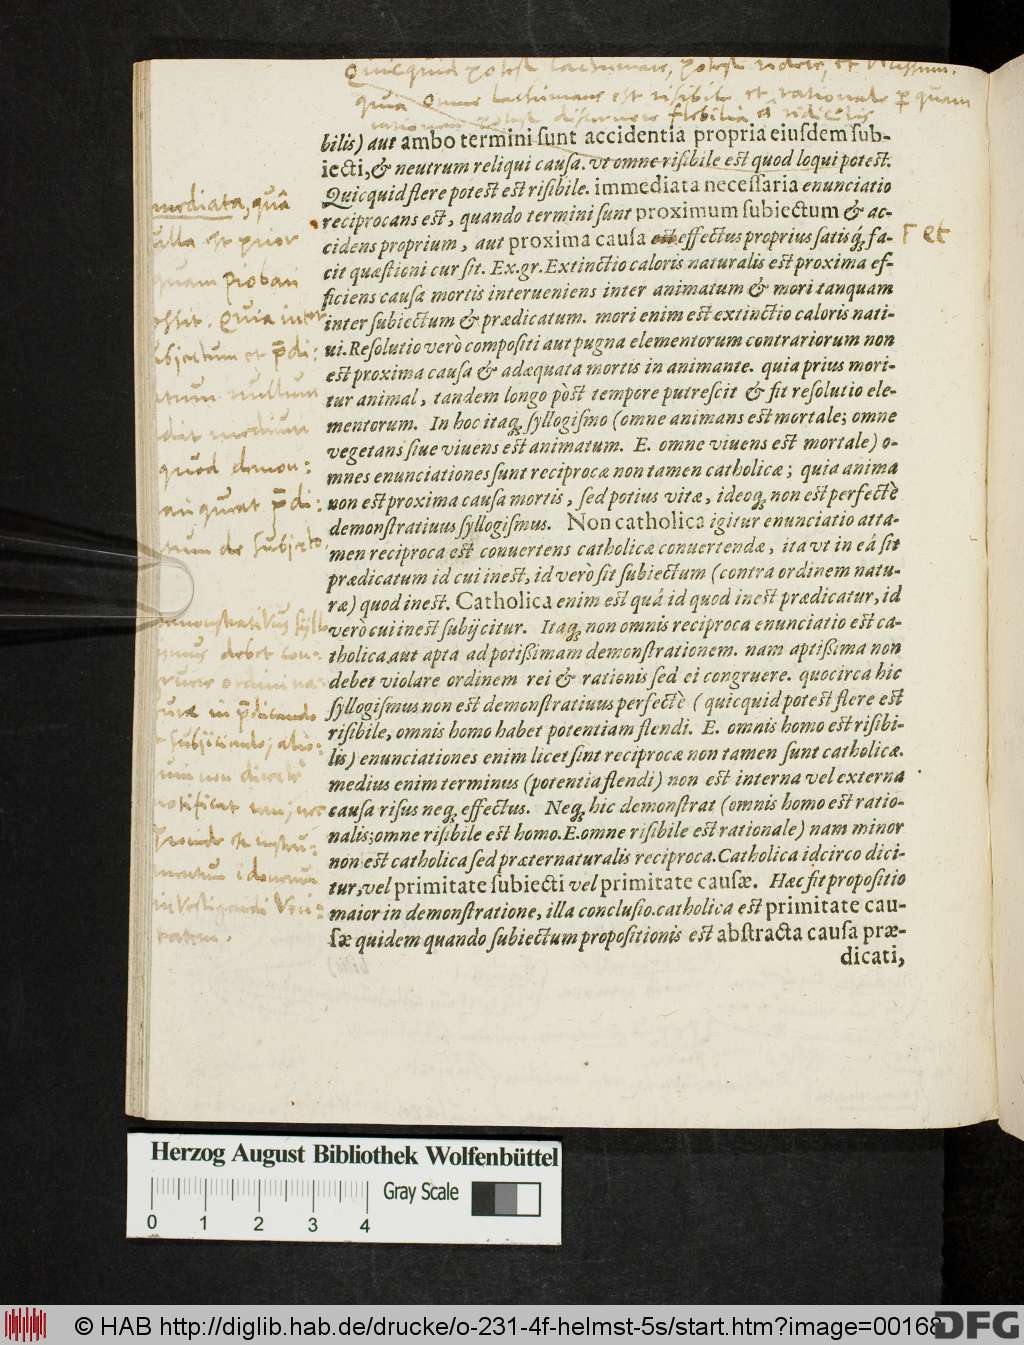 Quicquid potest lachrimare, potest ridere, et
quia Omne lachrimans est risibile et rationale quam
rationem potest discernere flebilia et ridicula
biliſ) aut ambo termini ſunt accidentia propria eiuſdem ſub-
iecti, & neutrum reliqui cauſa. vt omne riſibile eſt quod loqui poteſt.
Quicquid flere poteſt eſt riſibile. immediata neceſſaria enunciatio
reciprocans eſt, quando termini ſunt proximum ſubiectum & ac-
cidens proprium, aut proxima cauſa est effectus proprius ſatisq́; fa-
cit quæſtioni cur ſit. Ex. gr. Extinctio caloris naturalis eſt proxima ef-
ficiens cauſa mortis interueniens inter animatum & mori tanquam
inter ſubiectum & prædicatum. mori enim eſt extinctio caloris nati-
ui. Reſolutio verò compoſiti aut pugna elementorum contrariorum non
eſt proxima cauſa & adæquata mortis in animante. quia prius mori-
tur animal, tandem longo pòſt tempore putreſcit & fit reſolutio ele-
mentorum. In hoc itaq; ſyllogiſmo (omne animans eſt mortale; omne
vegetans ſiue viuens eſt animatum. E. omne viuens eſt mortale) o-
mnes enunciationes ſunt reciprocæ non tamen catholicæ; quia anima
non eſt proxima cauſa mortis, ſed potius vitæ, ideoq; non eſt perfectè
demonſtratiuus ſyllogiſmus. Non catholica igitur enunciatio atta-
men reciproca eſt conuertens catholicæ conuertendæ, ita vt in eâ ſit
prædicatum id cui ineſt, id verò ſit ſubiectum (contra ordinem natu-
ræ) quod ineſt. Catholica enim eſt quâ id quod ineſt prædicatur, id
verò cui ineſt ſubijcitur. Itaq; non omnis reciproca enunciatio eſt ca-
tholica, aut apta ad potiſſimam demonſtrationem. nam aptiſſima non
debet violare ordinem rei & rationis ſed ei congruere. quocirca hic
ſyllogiſmus non eſt demonſtratiuus perfectè (quicquid poteſt flere eſt
riſibile, omnis homo habet potentiam flendi. E. omnis homo eſt riſibi-
lis) enunciationes enim licet ſint reciprocæ non tamen ſunt catholicæ.
medius enim terminus (potentia flendi) non eſt interna vel externa
cauſa riſus neq; effectus. Neq; hic demonſtrat (omnis homo eſt ratio-
nalis; omne riſibile eſt homo. E. omne riſibile eſt rationale) nam minor
non eſt catholica ſed præternaturalis reciproca. Catholica idcirco dici-
tur, vel primitate ſubiecti vel primitate cauſæ. Hæc fit propoſitio
maior in demonſtratione, illa concluſio. catholica eſt primitate cau-
ſæ quidem quando ſubiectum propoſitionis eſt abſtracta cauſa præ-
dicati,
mediata, quâ
ulla est prior
quam probari
ossit. Quia inter
ubjectum et p̄di:
nullum
quod demon:
p̄di:
tum de subjecto.
monstrativus syllo
smus debet con:
gruere ordini na
turæ in p̄dicando
t subjiciendo, alio:
uin non directe
notificat
investigandi veri:
tatem.
et
Herzog August Bibliothek Wolfenbüttel
Gray Scale
0 1 2 3 4
© HAB http://diglib.hab.de/drucke/o-231-4f-helmst-5s/start.htm?image=00168
DFG